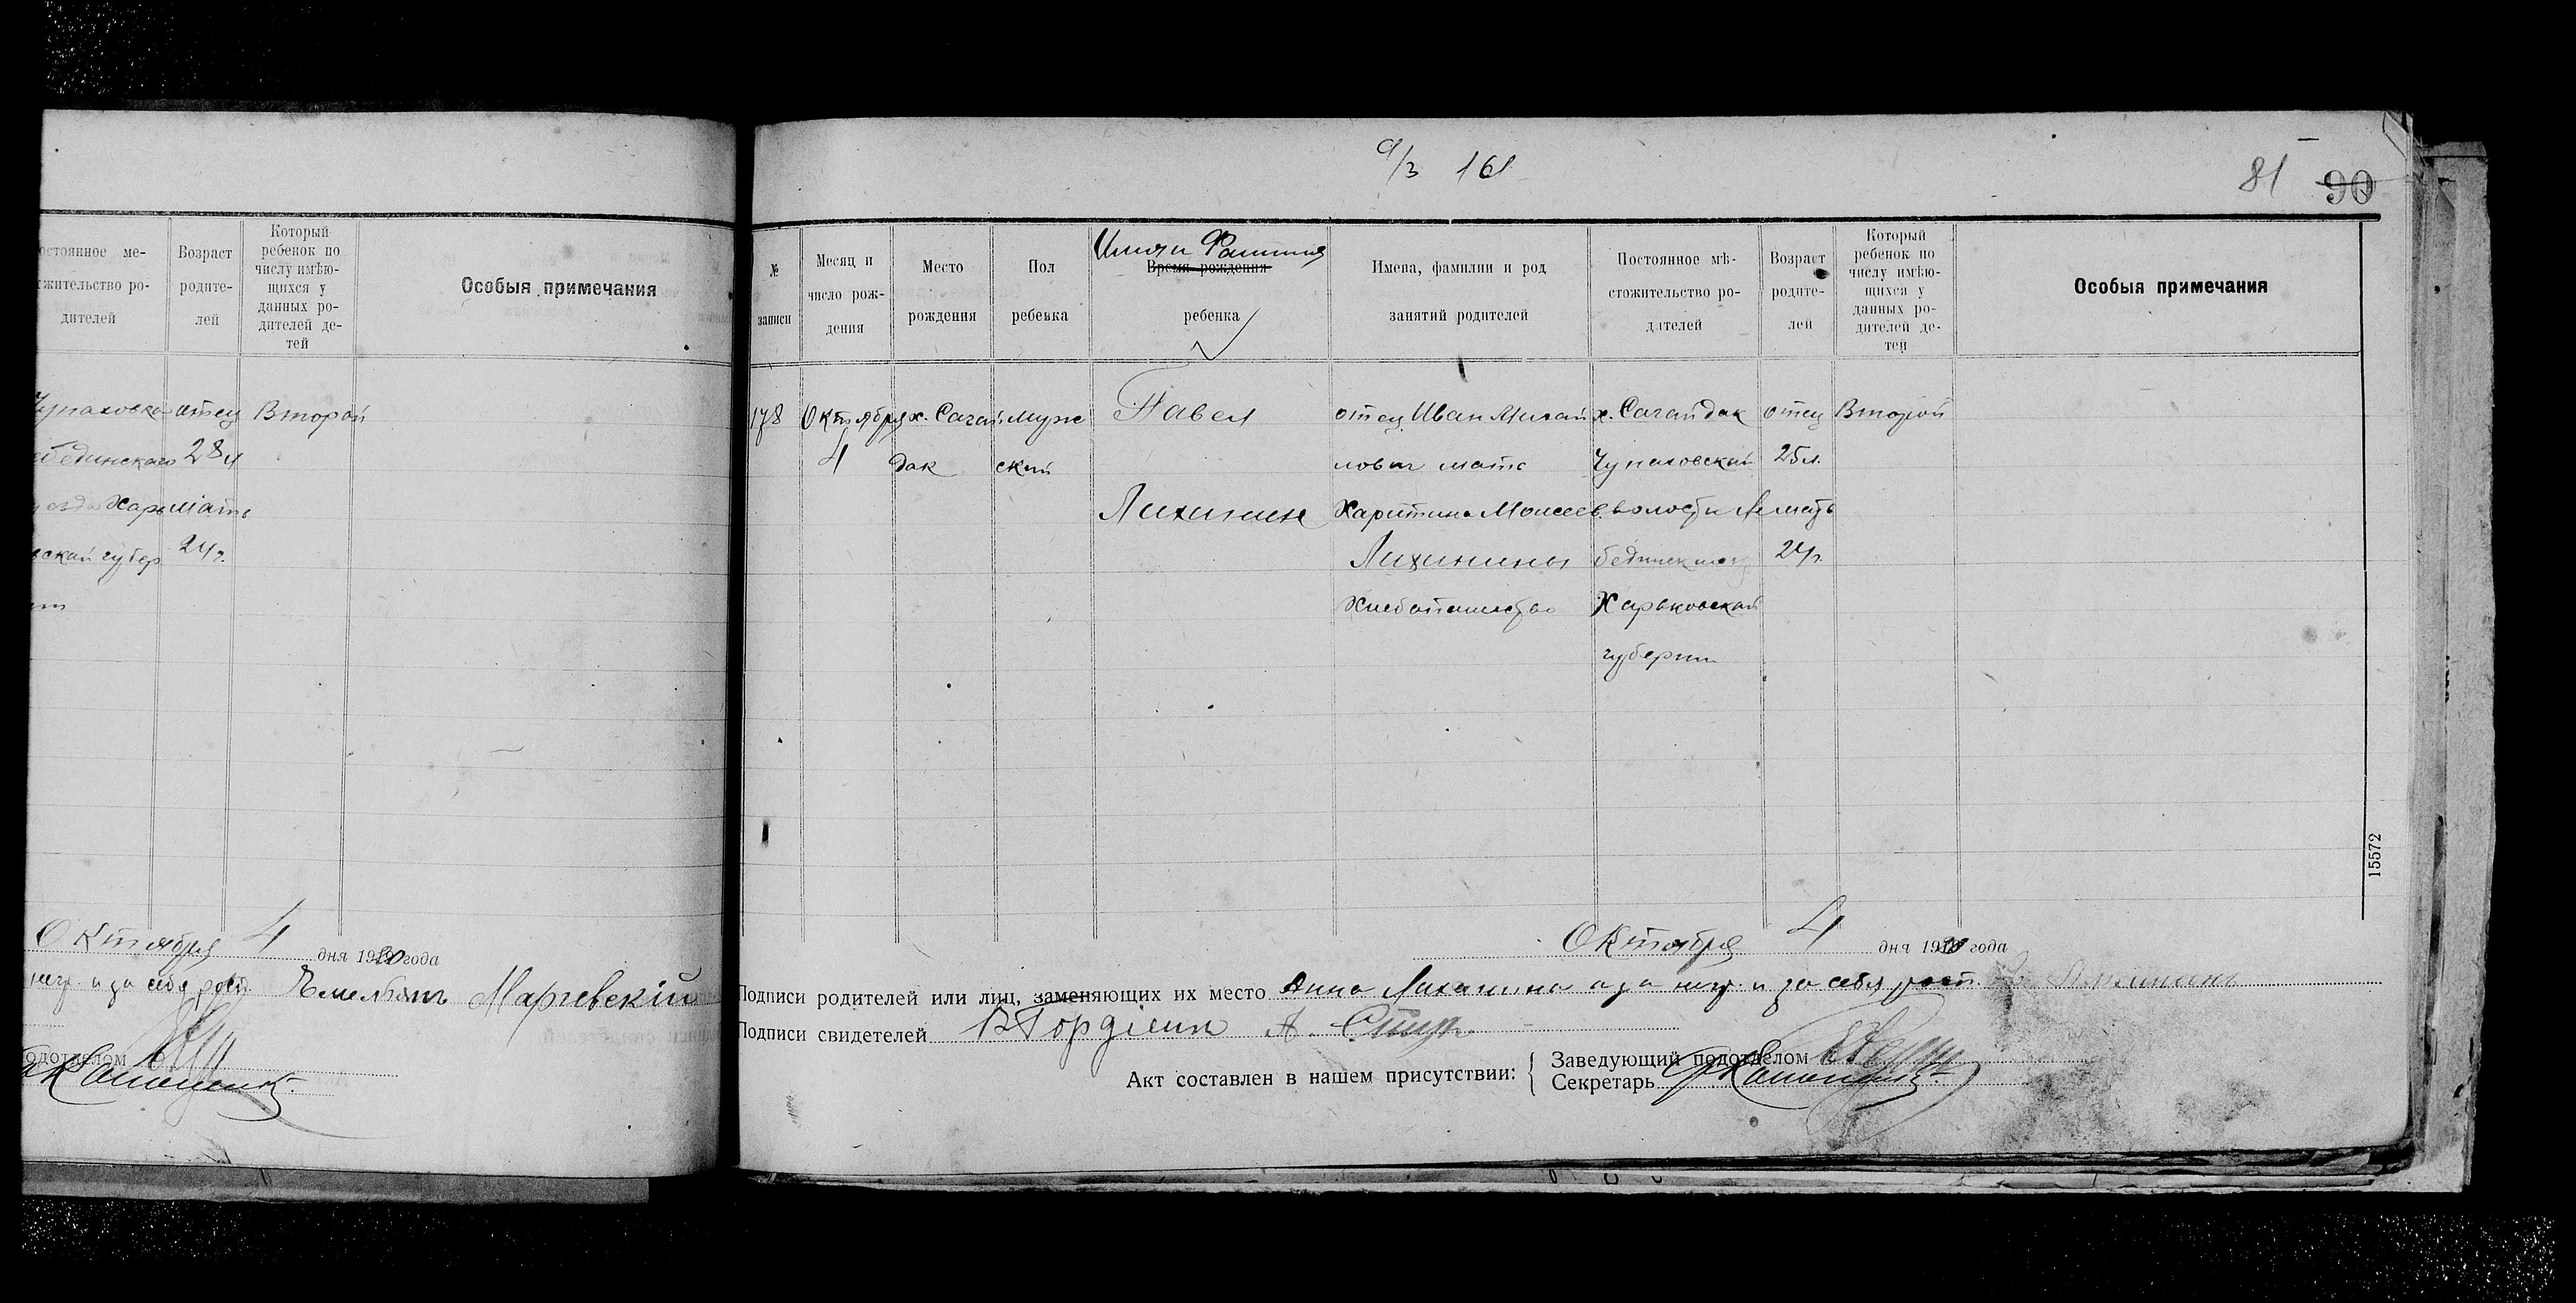 9/3 161
81 90
остоянное ме-
жительство ро-
дителей
Возраст
родите-
лей
Который
ребенок по
числу имѣю-
щихся у
данных ро-
дителей де-
тей
Особыя примечания
Чупаховка отец Второй
бединскаго 28 л
уезда Харь мать
вской губер 24 г.
Октября 4 дня 1920 года
негр. и за себя расп. Емельянъ Марчевскій
подотделом
№
записи
Месяц и
число рож-
дения
Место
рождения
Пол
ребенка
Имя и Фамилия
Время рождения
ребенка
Имена, фамилии и род
занятий родителей
Постоянное мѣ-
стожительство ро-
дителей
Возраст
родите-
лей
Который
ребенок по
числу имѣю-
щихся у
данных ро-
дителей де-
тей
Особыя примечания
178 Октября х. Сагай муж Павел отец Иван Михай х. Сагайдак отец Второй
4 дак ской лович мать Чупаховской 25 л.
Лихинин Харитина Моисеев. волости Ле мать
Лихинины бединского у 24 г.
Хлебопашество Харьковской
губернии
15572
Октября 4 дня 1920 года
Подписи родителей или лиц, заменяющих их место Анна Лихинина а за негр. и за себя расп.
Подписи свидетелей
Акт составлен в нашем присутствии:
Заведующий подотделом
Секретарь